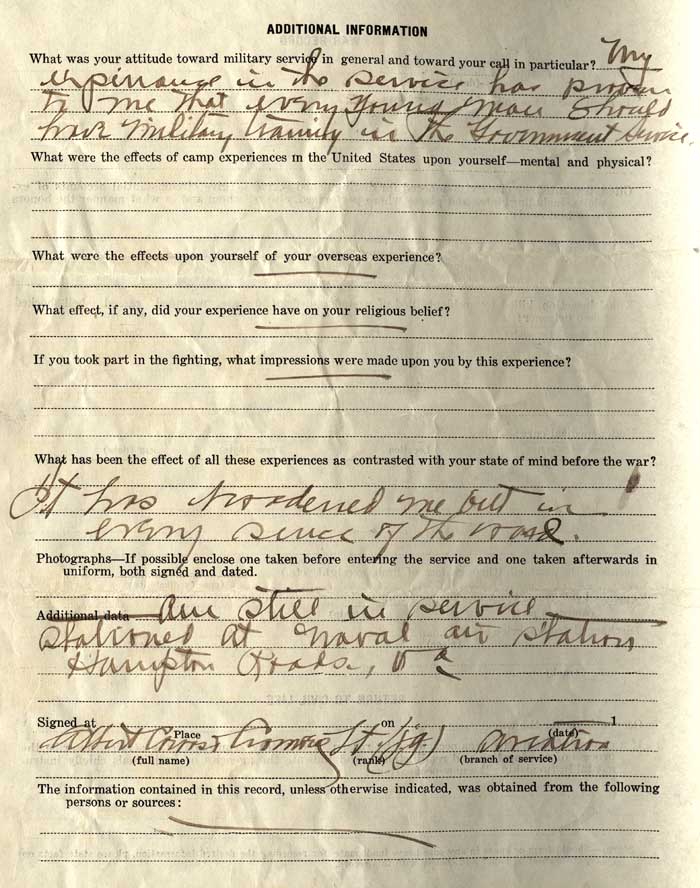 ADDITIONAL INFORMATION
What was your attitude toward military service in general and toward your call in particular? My
experiance in the service has proven
to me that every young man should
have military training in the Government Service.
What were the effects of camp experiences in the United States upon yourself—mental and physical?
What were the effects upon yourself of your overseas experience?
What effect, if any, did your experience have on your religious belief?
If you took part in the fighting, what impressions were made upon you by this experience?
What has been the effect of all these experiences as contrasted with your state of mind before the war?
It has broadened me out in
every sence of the word.
Photographs—If possible enclose one taken before entering the service and one taken afterwards in
uniform, both signed and dated.
Additional data Am still in service
stationed at Naval air station
Hampton Roads, Va
Signed at on 1
Place (date)
Albert Lt (jg.) Aviation
(full name) (rank) (branch of service)
The information contained in this record, unless otherwise indicated, was obtained from the following
persons or sources: